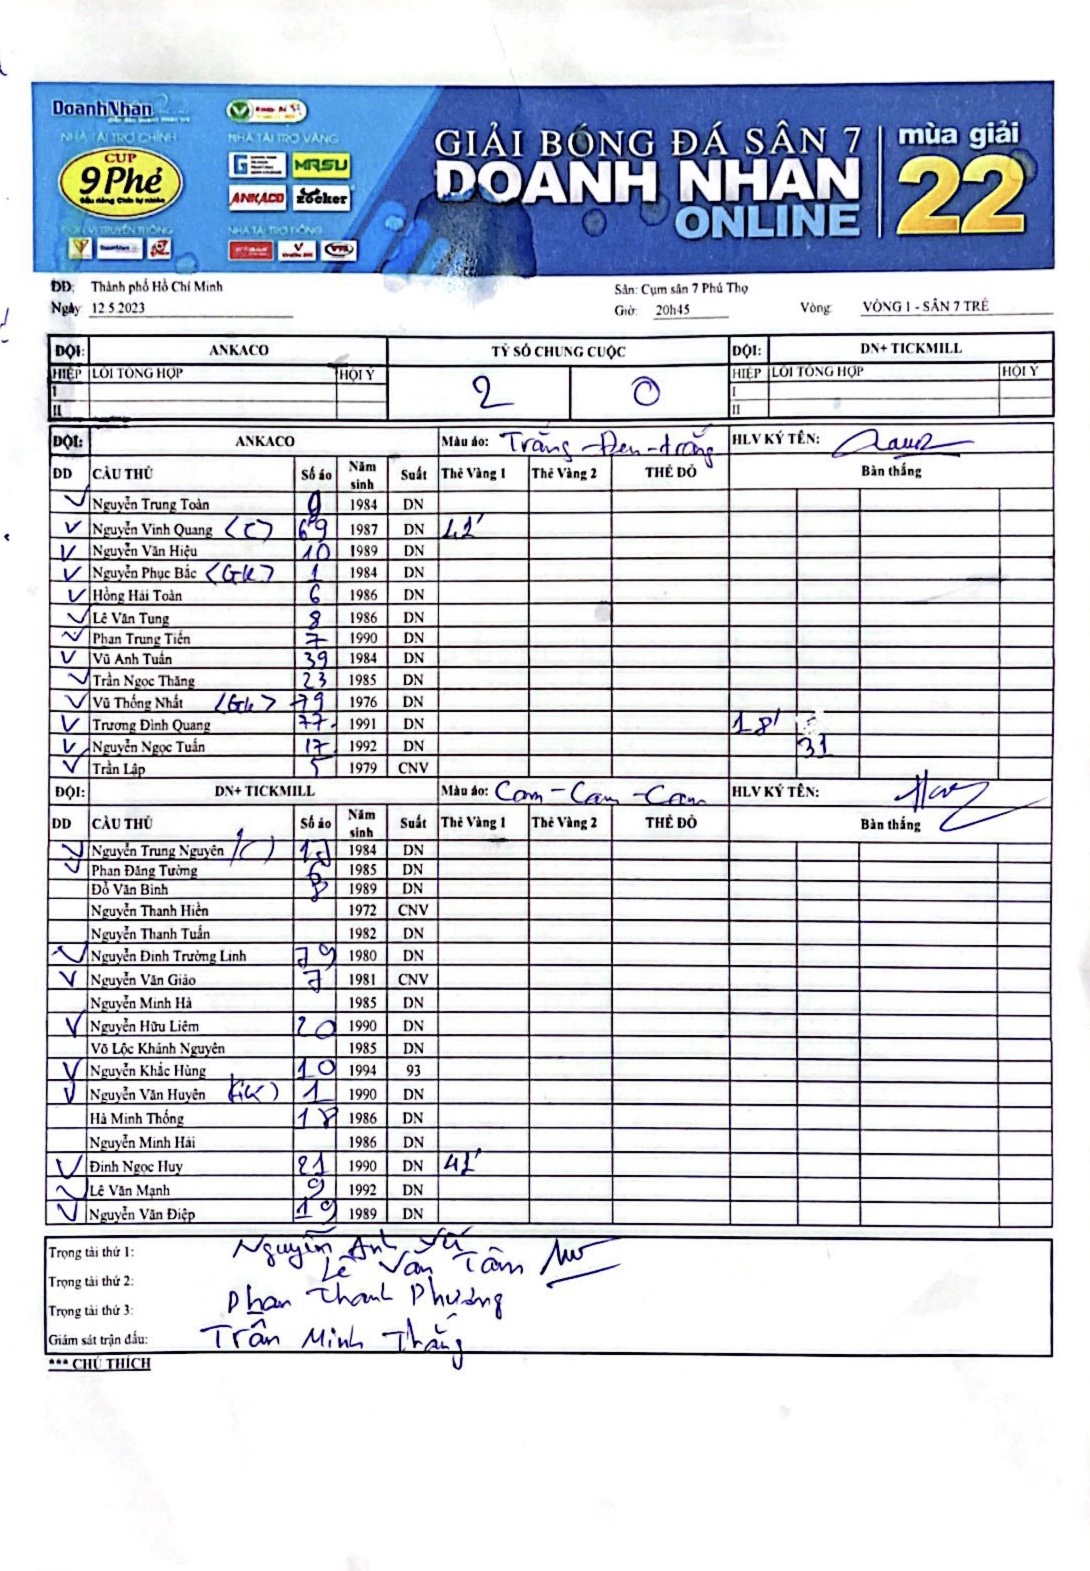 DoanhNhan
NHÀ TÀI TRỢ CHÍNH
NHÀ TÀI TRỢ VÀNG
CUP
9 Phẻ
MRSU
ANKACO
zocker
NHÀ TÀI TRỢ ĐỒNG
GIẢI BÓNG ĐÁ SÂN 7
DOANH NHAN
ONLINE
mùa giải
22
DD: Thành phố Hồ Chí Minh Sân: Cụm sân 7 Phú Thọ
Ngày 12.5.2023 Giờ: 20h45 Vòng: VÒNG 1 - SÂN 7 TRẺ
ĐỘI: ANKACO TỶ SỐ CHUNG CUỘC ĐỘI: DN+ TICKMILL
HIỆP LỖI TỔNG HỢP HỘI Ý 2 0 HIỆP LỖI TỔNG HỢP HỘI Ý
I I
II II
ĐỘI: ANKACO Màu áo: Trắng - Đen - trắng HLV KÝ TÊN:
DD CẦU THỦ Số áo Năm sinh Suất Thẻ Vàng 1 Thẻ Vàng 2 THẺ ĐỎ Bàn thắng
Nguyễn Trung Toàn 9 1984 DN
Nguyễn Vinh Quang (C) 69 1987 DN 42'
Nguyễn Văn Hiệu 10 1989 DN
Nguyễn Phục Bắc (GK) 1 1984 DN
Hồng Hải Toàn 6 1986 DN
Lê Văn Tung 8 1986 DN
Phan Trung Tiến 7 1990 DN
Vũ Anh Tuấn 39 1984 DN
Trần Ngọc Thăng 23 1985 DN
Vũ Thống Nhất (GK) 79 1976 DN
Trương Đình Quang 77 1991 DN 18'
Nguyễn Ngọc Tuấn 17 1992 DN 31
Trần Lập 5 1979 CNV
ĐỘI: DN+ TICKMILL Màu áo: Cam - Cam - Cam HLV KÝ TÊN:
DD CẦU THỦ Số áo Năm sinh Suất Thẻ Vàng 1 Thẻ Vàng 2 THẺ ĐỎ Bàn thắng
Nguyễn Trung Nguyên (C) 1984 DN
Phan Đăng Tường 6 1985 DN
Đỗ Văn Bình 8 1989 DN
Nguyễn Thanh Hiền 1972 CNV
Nguyễn Thanh Tuấn 1982 DN
Nguyễn Đình Trường Linh 79 1980 DN
Nguyễn Văn Giáo 7 1981 CNV
Nguyễn Minh Hà 1985 DN
Nguyễn Hữu Liêm 20 1990 DN
Võ Lộc Khánh Nguyên 1985 DN
Nguyễn Khắc Hùng 10 1994 93
Nguyễn Văn Huyên (GK) 1 1990 DN
Hà Minh Thống 18 1986 DN
Nguyễn Minh Hải 1986 DN
Đinh Ngọc Huy 21 1990 DN 42'
Lê Văn Mạnh 9 1992 DN
Nguyễn Văn Điệp 19 1989 DN
Trọng tài thứ 1: Nguyễn Anh Vũ
Trọng tài thứ 2: Lê Văn Tâm
Trọng tài thứ 3: Phan Thanh Phương
Giám sát trận đấu: Trần Minh Thắng
*** CHÚ THÍCH